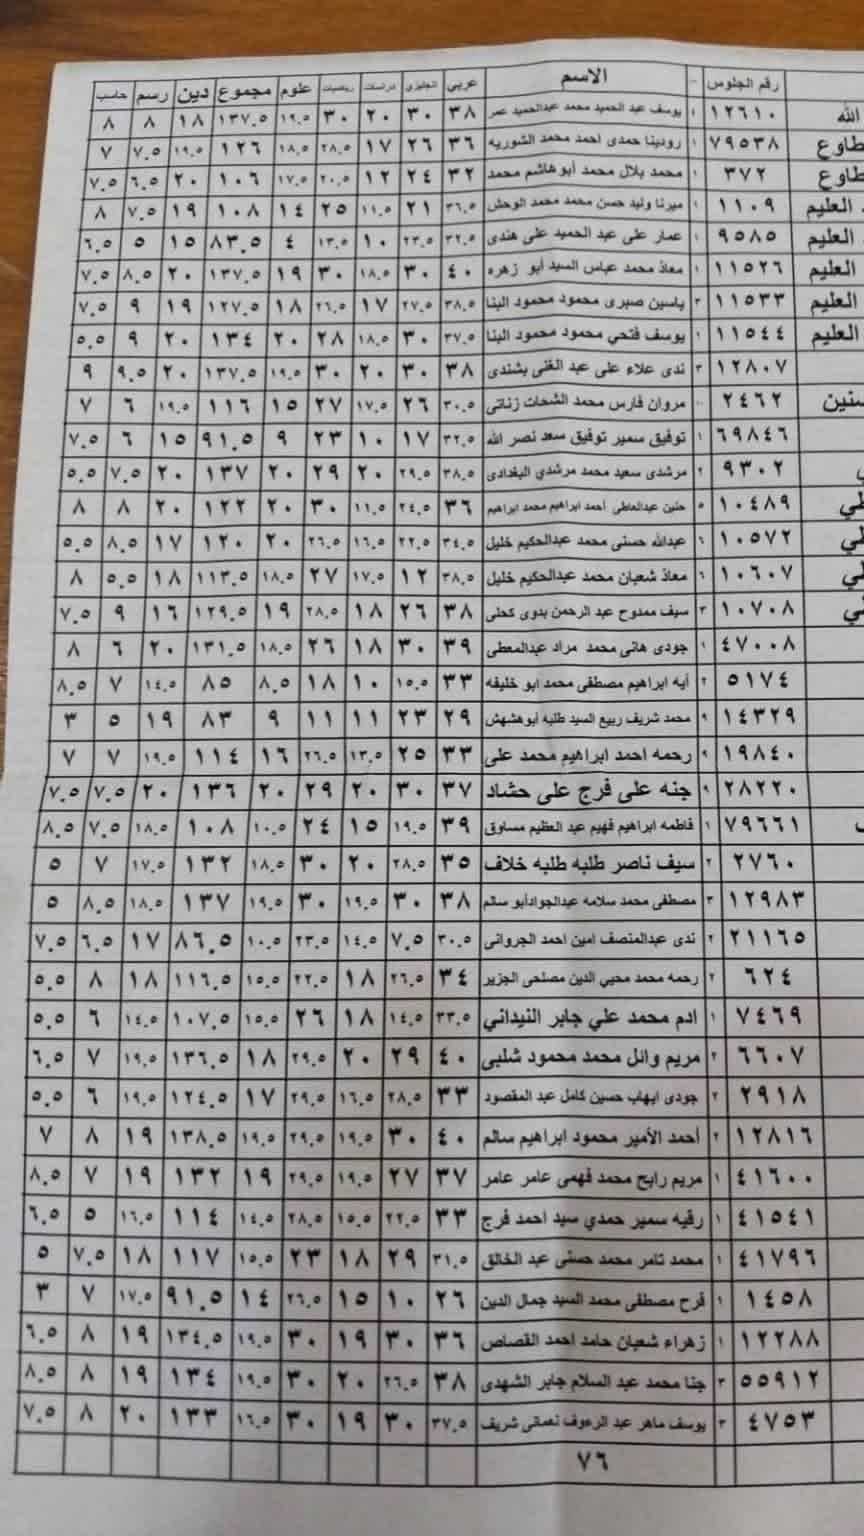 رقم الجلوس الاسم عربي انجليزي دراسات رياضيات علوم مجموع دين رسم حاسب
الله ١٢٦١٠ ١ يوسف عبد الحميد محمد عبدالحميد عمر ٣٨ ٣٠ ٢٠ ٣٠ ١٩,٥ ١٣٧,٥ ١٨ ٨ ٨
طاوع ٧٩٥٣٨ ١ رودينا حمدى احمد محمد الشوريه ٣٦ ٢٦ ١٧ ٢٨,٥ ١٨,٥ ١٢٦ ١٩,٥ ٧,٥ ٧
طاوع ٣٧٢ ١ محمد بلال محمد أبوهاشم محمد ٣٢ ٢٤ ١٢ ٢٠,٥ ١٧,٥ ١٠٦ ٢٠ ٦,٥ ٧,٥
العليم ١١٠٩ ١ ميرنا وليد حسن محمد محمد الوحش ٣٦,٥ ٢١ ١١,٥ ٢٥ ١٤ ١٠٨ ١٩ ٧,٥ ٨
العليم ٩٥٨٥ ١ عمار على عبد الحميد على هندى ٣٢,٥ ٢٣,٥ ١٠ ١٣,٥ ٤ ٨٣,٥ ١٥ ٥ ٦,٥
العليم ١١٥٢٦ ١ معاذ محمد عباس السيد أبو زهره ٤٠ ٣٠ ١٨,٥ ٣٠ ١٩ ١٣٧,٥ ٢٠ ٨,٥ ٧,٥
العليم ١١٥٣٣ ٢ ياسين صبرى محمود محمود البنا ٣٨,٥ ٢٧,٥ ١٧ ٢٦,٥ ١٨ ١٢٧,٥ ١٩ ٩ ٧,٥
العليم ١١٥٤٤ ١ يوسف فتحي محمود محمود البنا ٣٧,٥ ٣٠ ١٨,٥ ٢٨ ٢٠ ١٣٤ ٢٠ ٩ ٥,٥
١٢٨٠٧ ٣ ندى علاء على عبد الغنى بشندى ٣٨ ٣٠ ٢٠ ٣٠ ١٩,٥ ١٣٧,٥ ٢٠ ٩,٥ ٩
سنين ٢٤٦٢ مروان فارس محمد الشحات زناتى ٣٠,٥ ٢٦ ١٧,٥ ٢٧ ١٥ ١١٦ ١٩,٥ ٦ ٧
٦٩٨٤٦ ١ توفيق سمير توفيق سعد نصر الله ٣٢,٥ ١٧ ١٠ ٢٣ ٩ ٩١,٥ ١٥ ٦ ٧,٥
٩٣٠٢ ٢ مرشدى سعيد محمد مرشدي البغدادى ٣٨,٥ ٢٩,٥ ٢٠ ٢٩ ٢٠ ١٣٧ ٢٠ ٧,٥ ٥,٥
طي ١٠٤٨٩ ٥ حنين عبدالعاطى أحمد ابراهيم محمد ابراهيم ٣٦ ٢٤,٥ ١١,٥ ٣٠ ٢٠ ١٢٢ ٢٠ ٨ ٨
طي ١٠٥٧٢ ٦ عبدالله حسنى محمد عبدالحكيم خليل ٣٤,٥ ٢٢,٥ ١٦,٥ ٢٦,٥ ٢٠ ١٢٠ ١٧ ٨,٥ ٥,٥
طي ١٠٦٠٧ ٦ معاذ شعبان محمد عبدالحكيم خليل ٣٨,٥ ١٢ ١٧,٥ ٢٧ ١٨,٥ ١١٣,٥ ١٨ ٥,٥ ٨
١٠٧٠٨ ٣ سيف ممدوح عبد الرحمن بدوى كحلى ٣٨ ٢٦ ١٨ ٢٨,٥ ١٩ ١٢٩,٥ ١٦ ٩ ٧,٥
٤٧٠٠٨ ١ جودى هانى محمد مراد عبدالمعطى ٣٩ ٣٠ ١٨ ٢٦ ١٨,٥ ١٣١,٥ ٢٠ ٦ ٨
٥١٧٤ ٢ أيه ابراهيم مصطفى محمد ابو خليفه ٣٣ ١٥,٥ ١٠ ١٨ ٨,٥ ٨٥ ١٤,٥ ٧ ٨,٥
١٤٣٢٩ ٩ محمد شريف ربيع السيد طلبه أبوهشهش ٢٩ ٢٣ ١١ ١١ ٩ ٨٣ ١٩ ٥ ٣
١٩٨٤٠ ٩ رحمه احمد ابراهيم محمد على ٣٣ ٢٥ ١٣,٥ ٢٦,٥ ١٦ ١١٤ ١٩,٥ ٧ ٧
٢٨٢٢٠ ٩ جنه على فرج على حشاد ٣٧ ٣٠ ٢٠ ٢٩ ٢٠ ١٣٦ ٢٠ ٧,٥ ٧,٥
٧٩٦٦١ ١ فاطمه ابراهيم فهيم عبد العظيم مساوق ٣٩ ١٩,٥ ١٥ ٢٤ ١٠,٥ ١٠٨ ١٨,٥ ٧,٥ ٨,٥
٢٧٦٠ ٢ سيف ناصر طلبه طلبه خلاف ٣٥ ٢٨,٥ ٢٠ ٣٠ ١٨,٥ ١٣٢ ١٧,٥ ٧ ٥
١٢٩٨٣ ٣ مصطفى محمد سلامه عبدالجوادأبو سالم ٣٨ ٣٠ ١٩,٥ ٣٠ ١٩,٥ ١٣٧ ١٨,٥ ٨,٥ ٥
٢١١٦٥ ٢ ندى عبدالمنصف امين احمد الجروانى ٣٠,٥ ٧,٥ ١٤,٥ ٢٣,٥ ١٠,٥ ٨٦,٥ ١٧ ٦,٥ ٧,٥
٦٢٤ ٢ رحمه محمد محيي الدين مصلحى الجزير ٣٤ ٢٦,٥ ١٨ ٢٢,٥ ١٥,٥ ١١٦,٥ ١٨ ٨ ٥,٥
٧٤٦٩ ١ ادم محمد علي جابر النيداني ٣٣,٥ ١٤,٥ ١٨ ٢٦ ١٥,٥ ١٠٧,٥ ١٤,٥ ٦ ٥,٥
٦٦٠٧ ٢ مريم وائل محمد محمود شلبى ٤٠ ٢٩ ٢٠ ٢٩,٥ ١٨ ١٣٦,٥ ١٩,٥ ٧ ٦,٥
٢٩١٨ ٢ جودى ايهاب حسين كامل عبد المقصود ٣٣ ٢٨,٥ ١٦,٥ ٢٩,٥ ١٧ ١٢٤,٥ ١٩,٥ ٦ ٥,٥
١٢٨١٦ ٢ أحمد الأمير محمود ابراهيم سالم ٤٠ ٣٠ ١٩,٥ ٢٩,٥ ١٩,٥ ١٣٨,٥ ١٩ ٨ ٧
٤١٦٠٠ ١ مريم رابح محمد فهمى عامر عامر ٣٧ ٢٧ ١٩,٥ ٢٩,٥ ١٩ ١٣٢ ١٩ ٧ ٨,٥
٤١٥٤١ ١ رقيه سمير حمدي سيد احمد فرج ٣٣ ٢٢,٥ ١٥,٥ ٢٨,٥ ١٤,٥ ١١٤ ١٦,٥ ٥ ٦,٥
٤١٧٩٦ ١ محمد تامر محمد حسنى عبد الخالق ٣١,٥ ٢٩ ١٨ ٢٣ ١٥,٥ ١١٧ ١٨ ٧,٥ ٥
١٤٥٨ ١ فرح مصطفى محمد السيد جمال الدين ٢٦ ١٠ ١٥ ٢٦,٥ ١٤ ٩١,٥ ١٧,٥ ٧ ٣
١٢٢٨٨ ١ زهراء شعبان حامد احمد القصاص ٣٦ ٣٠ ١٩ ٣٠ ١٩,٥ ١٣٤,٥ ١٩ ٨ ٦,٥
٥٥٩١٢ ٣ جنا محمد عبد السلام جابر الشهدى ٣٨ ٢٦,٥ ٢٠ ٣٠ ١٩,٥ ١٣٤ ١٩ ٨ ٨,٥
٤٧٥٣ ٣ يوسف ماهر عبد الرءوف نعمانى شريف ٣٧,٥ ٣٠ ١٩ ٣٠ ١٦,٥ ١٣٣ ٢٠ ٨ ٧,٥
٧٦